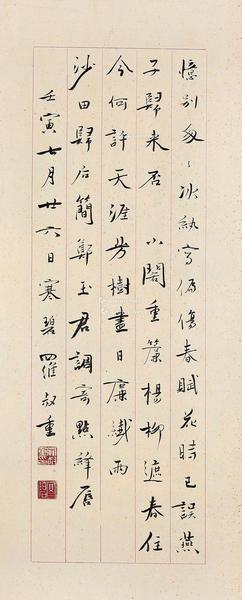 憶別匆匆冰紈寫偏傷春賦花時已誤燕
子歸来否 小閣重簾楊柳遮春住
今何許天涯芳樹盡日廉纖雨
沙田歸后簡鄭玉君調寄點絳唇
壬寅七月廿六日寒碧 四維叔重